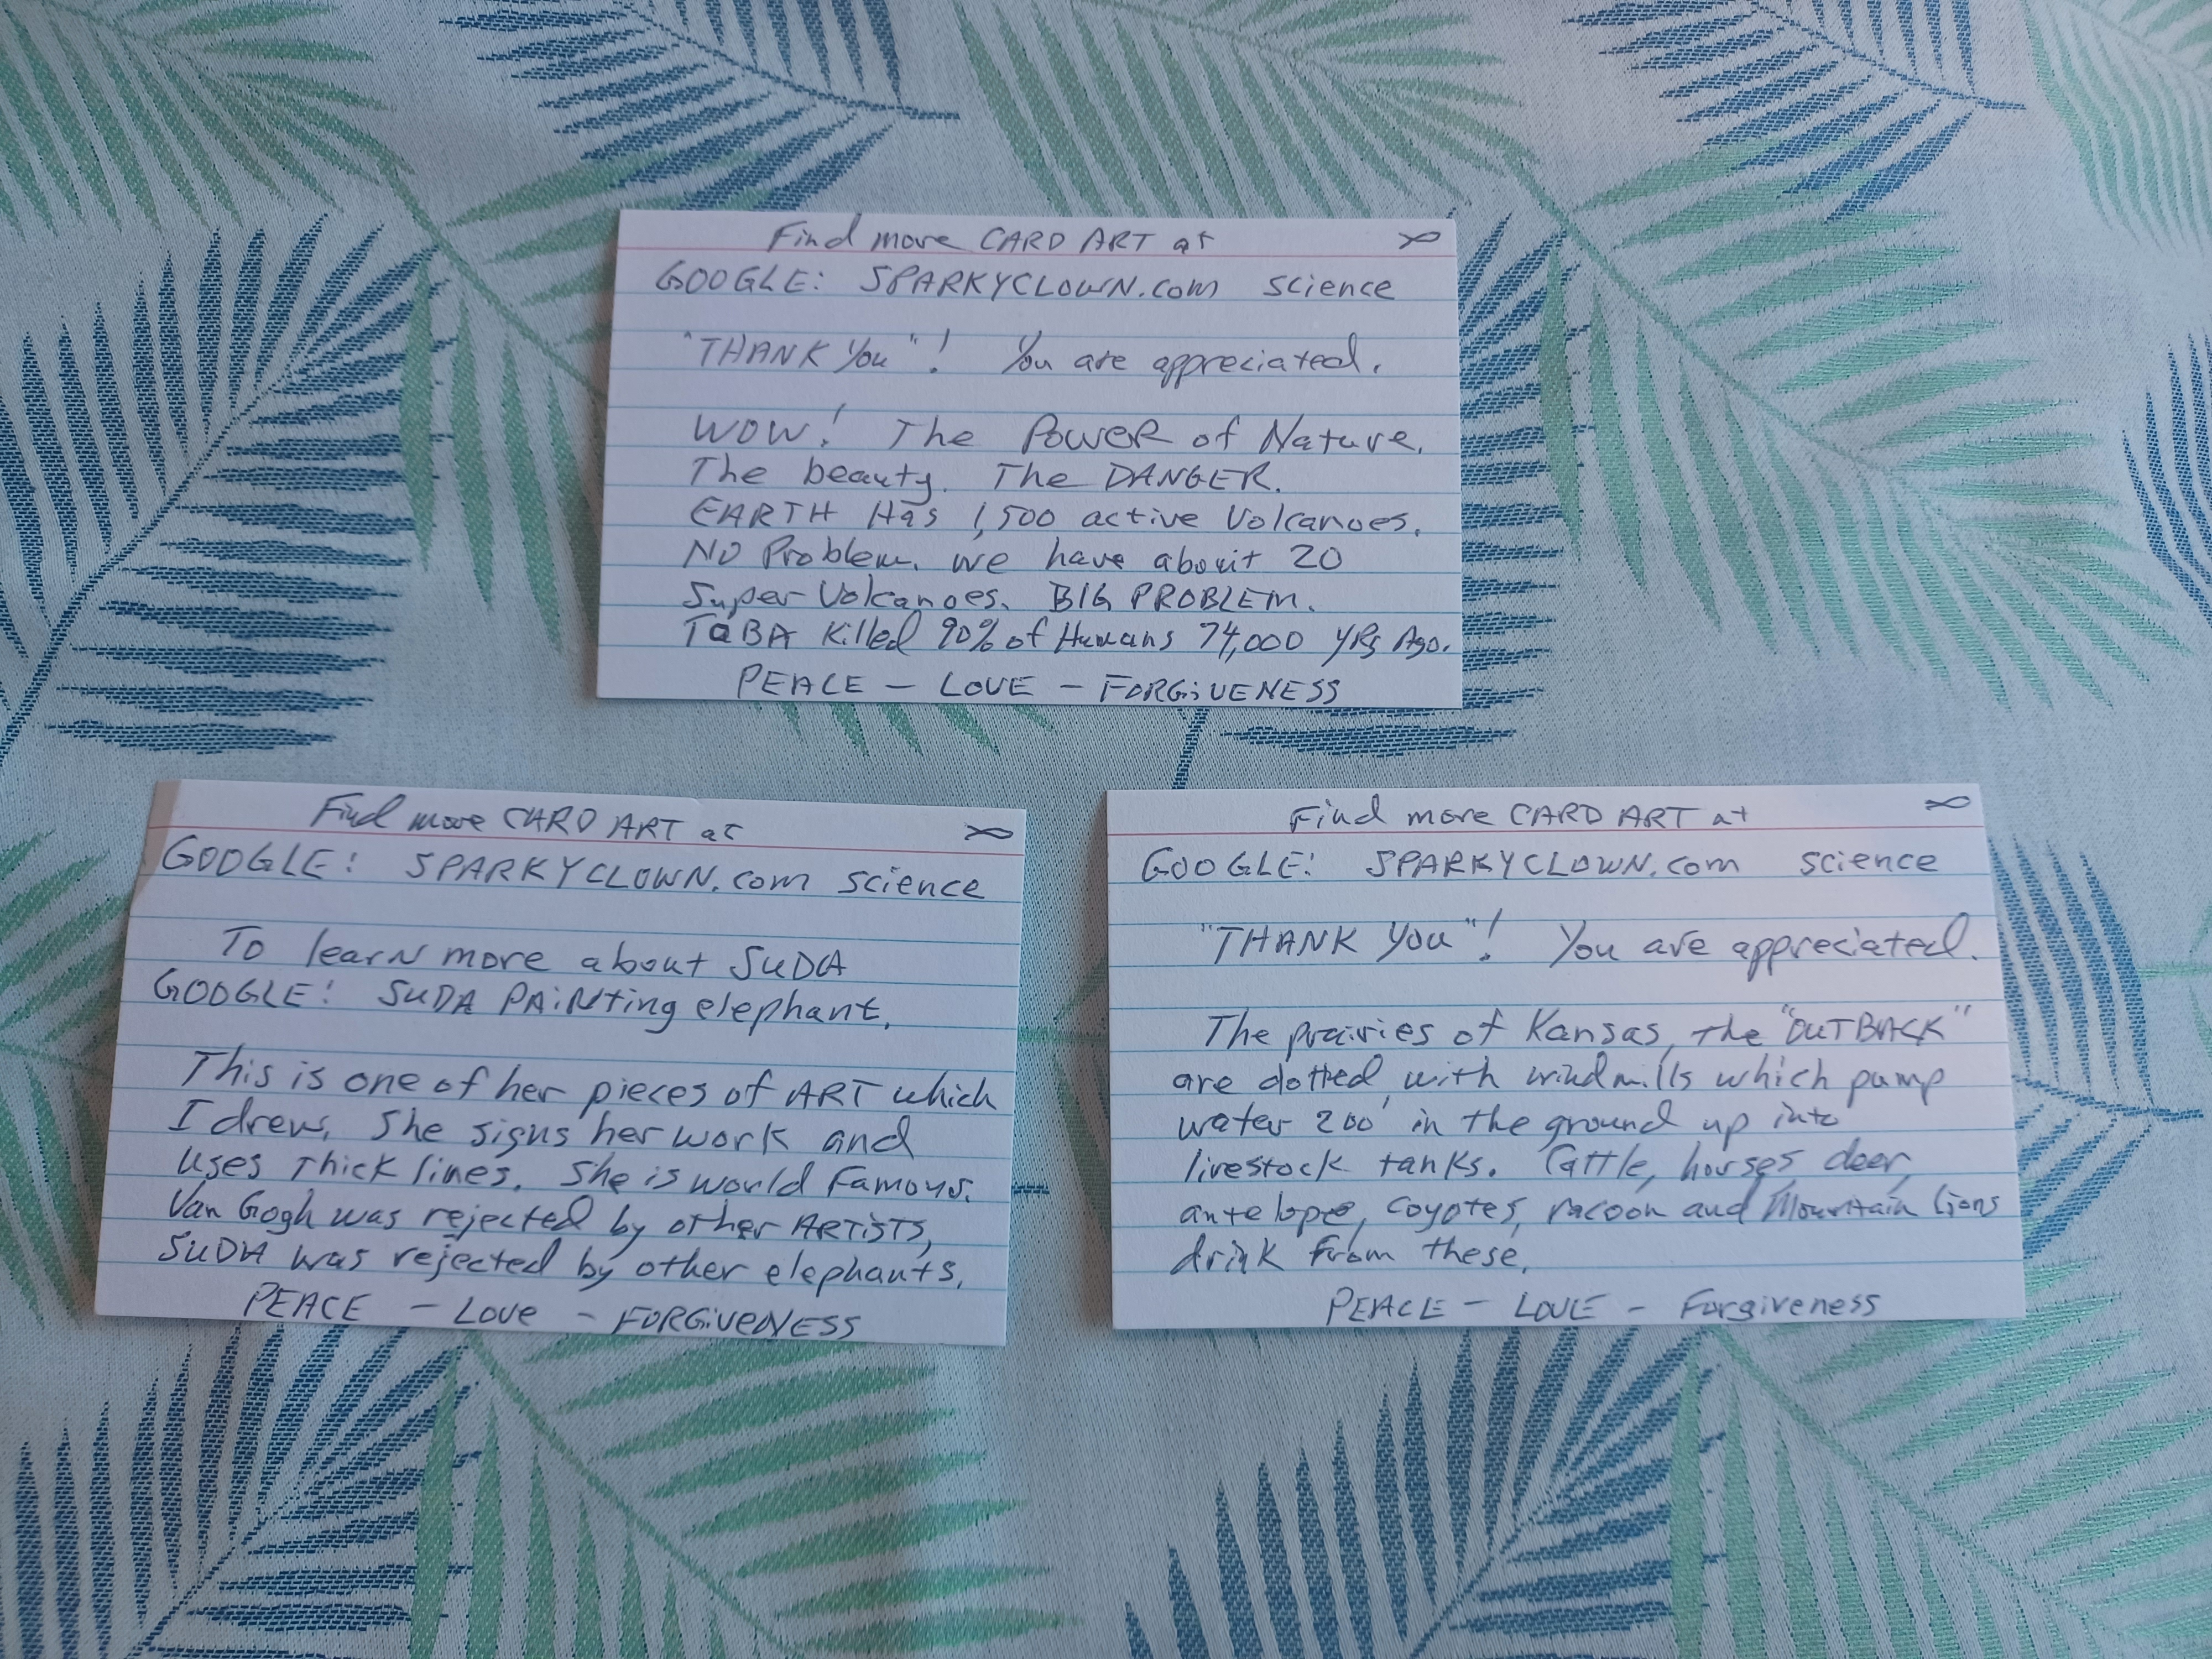 Find more CARD ART at ∞
GOOGLE: SPARKYCLOWN.com science
"THANK You"! You are appreciated.
WOW! The PoWER of Nature.
The beauty. The DANGER.
EARTH Has 1,500 active Volcanoes.
NO Problem. we have about 20
Super Volcanoes. BIG PROBLEM.
TOBA Killed 90% of Humans 74,000 YRs Ago.
PEACE – LOVE – FORGiVENESS
Find more CARD ART at ∞
GOOGLE: SPARKYCLOWN.com science
To learN more about SUDA
GOOGLE: SUDA PAiNting elephant.
This is one of her pieces of ART which
I drew. She signs her work and
uses thick lines. She is world famous.
Van Gogh was rejected by other ARTiSTS,
SUDA was rejected by other elephants.
PEACE – Love – FORGiVeNESS
Find more CARD ART at ∞
GOOGLE: SPARKYCLOWN.com science
"THANK You"! You are appreciated.
The prairies of Kansas, the "OUTBACK"
are dotted with windmills which pump
water 200' in the ground up into
livestock tanks. Cattle, horses, deer,
antelope, coyotes, racoon and Mountain lions
drink from these.
PEACE – LOVE – Forgiveness